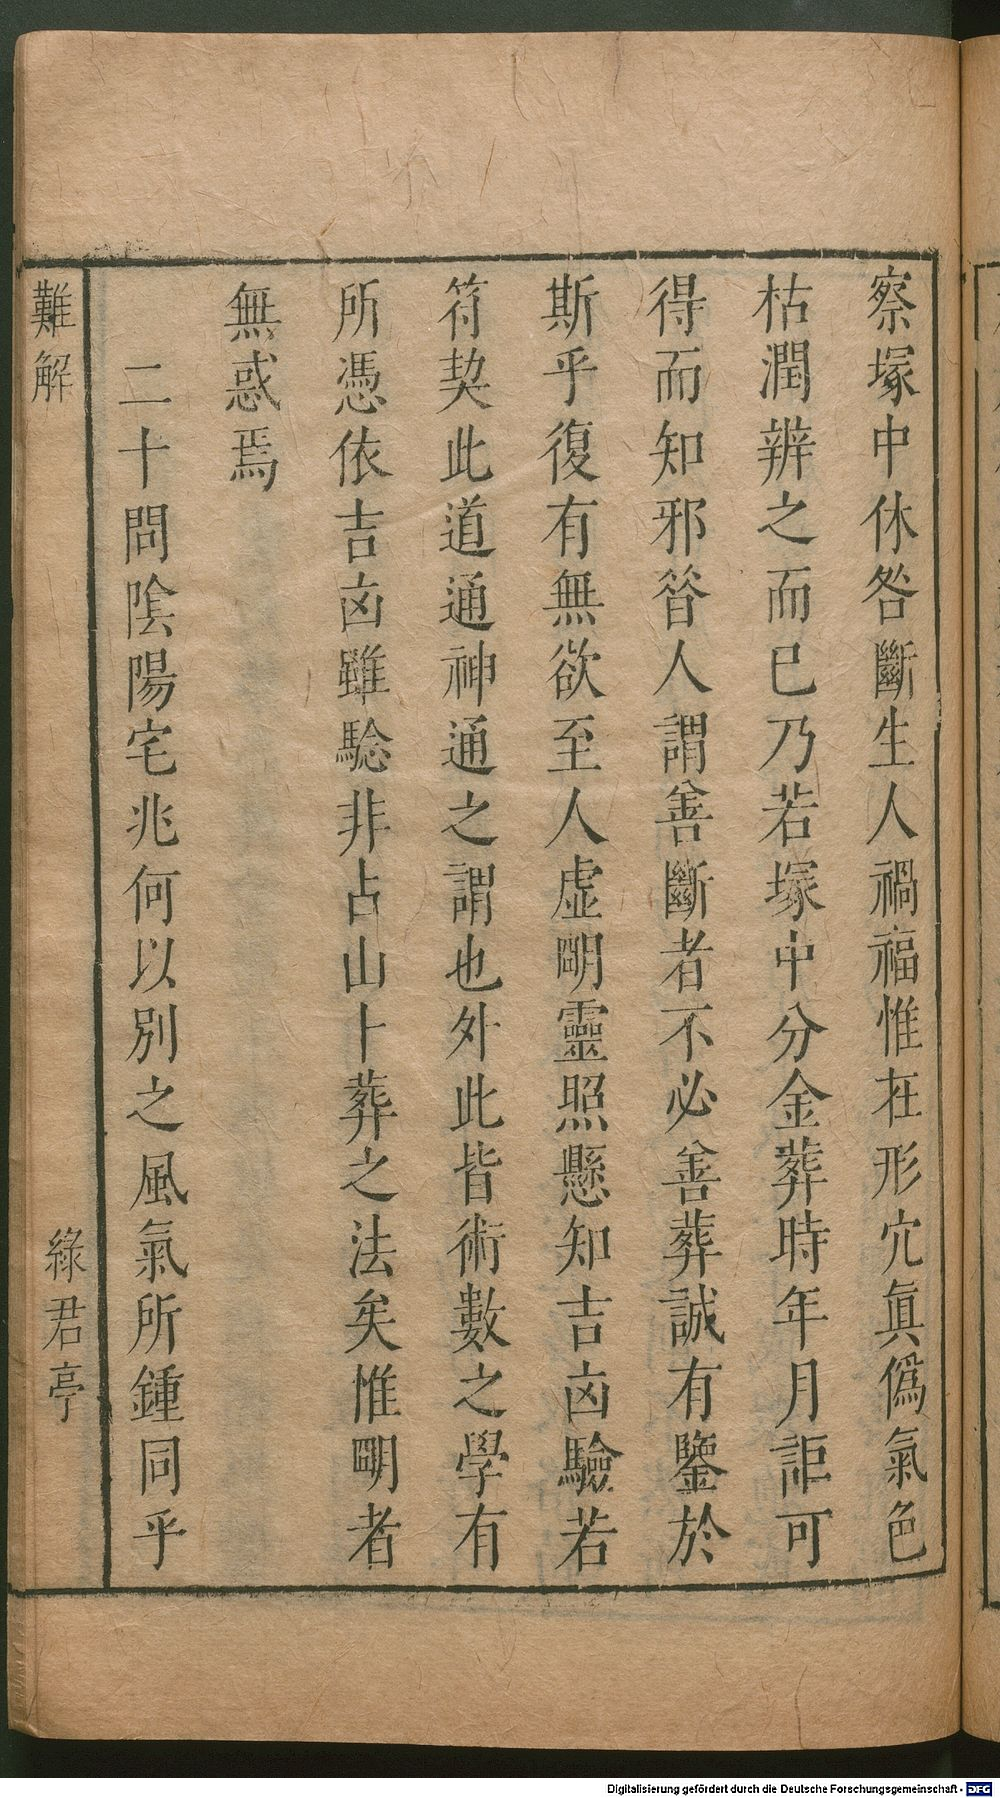 察塚中休咎斷生人禍福惟在形穴眞僞氣色
枯潤辨之而已乃若塚中分金葬時年月詎可
得而知邪昝人謂善斷者不必善葬誠有鑒於
斯乎復有無欲至人虛明靈照懸知吉凶驗若
符契此道通神通之謂也外此皆術數之學有
所憑依吉凶雖騐非占山卜葬之法矣惟明者
無惑焉
二十問陰陽宅兆何以別之風氣所鍾同乎
難解
綠君亭
Digitalisierung gefördert durch die Deutsche Forschungsgemeinschaft - DFG